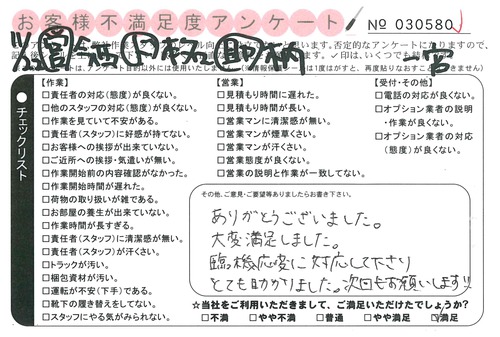 お客様不満足度アンケート
№ 030580
一宮
チェックリスト
【作業】
□責任者の対応(態度)が良くない。
□他のスタッフの対応(態度)が良くない。
□作業を見ていて不安がある。
□責任者(スタッフ)に好感が持てない。
□お客様への挨拶が出来ていない。
□ご近所への挨拶・気遣いが無い。
□作業開始前の内容確認がなかった。
□作業開始時間が遅れた。
□荷物の取り扱いが雑である。
□お部屋の養生が出来ていない。
□作業時間が長すぎる。
□責任者(スタッフ)に清潔感が無い。
□責任者(スタッフ)が汗くさい。
□トラックが汚い。
□梱包資材が汚い。
□運転が不安(下手)である。
□靴下の履き替えをしてない。
□スタッフにやる気がみられない。
【営業】
□見積もり時間に遅れた。
□見積もり時間が長い。
□営業マンに清潔感が無い。
□営業マンが煙草くさい。
□営業マンが汗くさい。
□営業態度が良くない。
□営業の説明と作業が一致してない。
【受付・その他】
□電話の対応が良くない。
□オプション業者の説明
・作業が良くない。
□オプション業者の対応
(態度)が良くない。
その他、ご意見・ご要望等ありましたらお書き下さい。
ありがとうございました。
大変満足しました。
臨機応変に対応して下さり
とても助かりました。次回もお願いします!!
☆当社をご利用いただきまして、ご満足いただけたでしょうか?
□不満 □やや不満 □普通 □やや満足 □満足